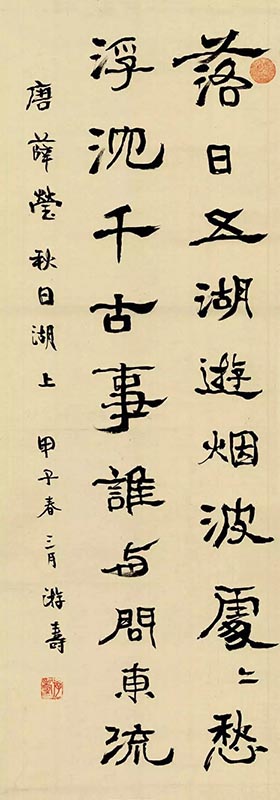 落日五湖遊烟波處〻愁
浮沈千古事誰与問東流
唐薛瑩秋日湖上 甲子春三月游壽